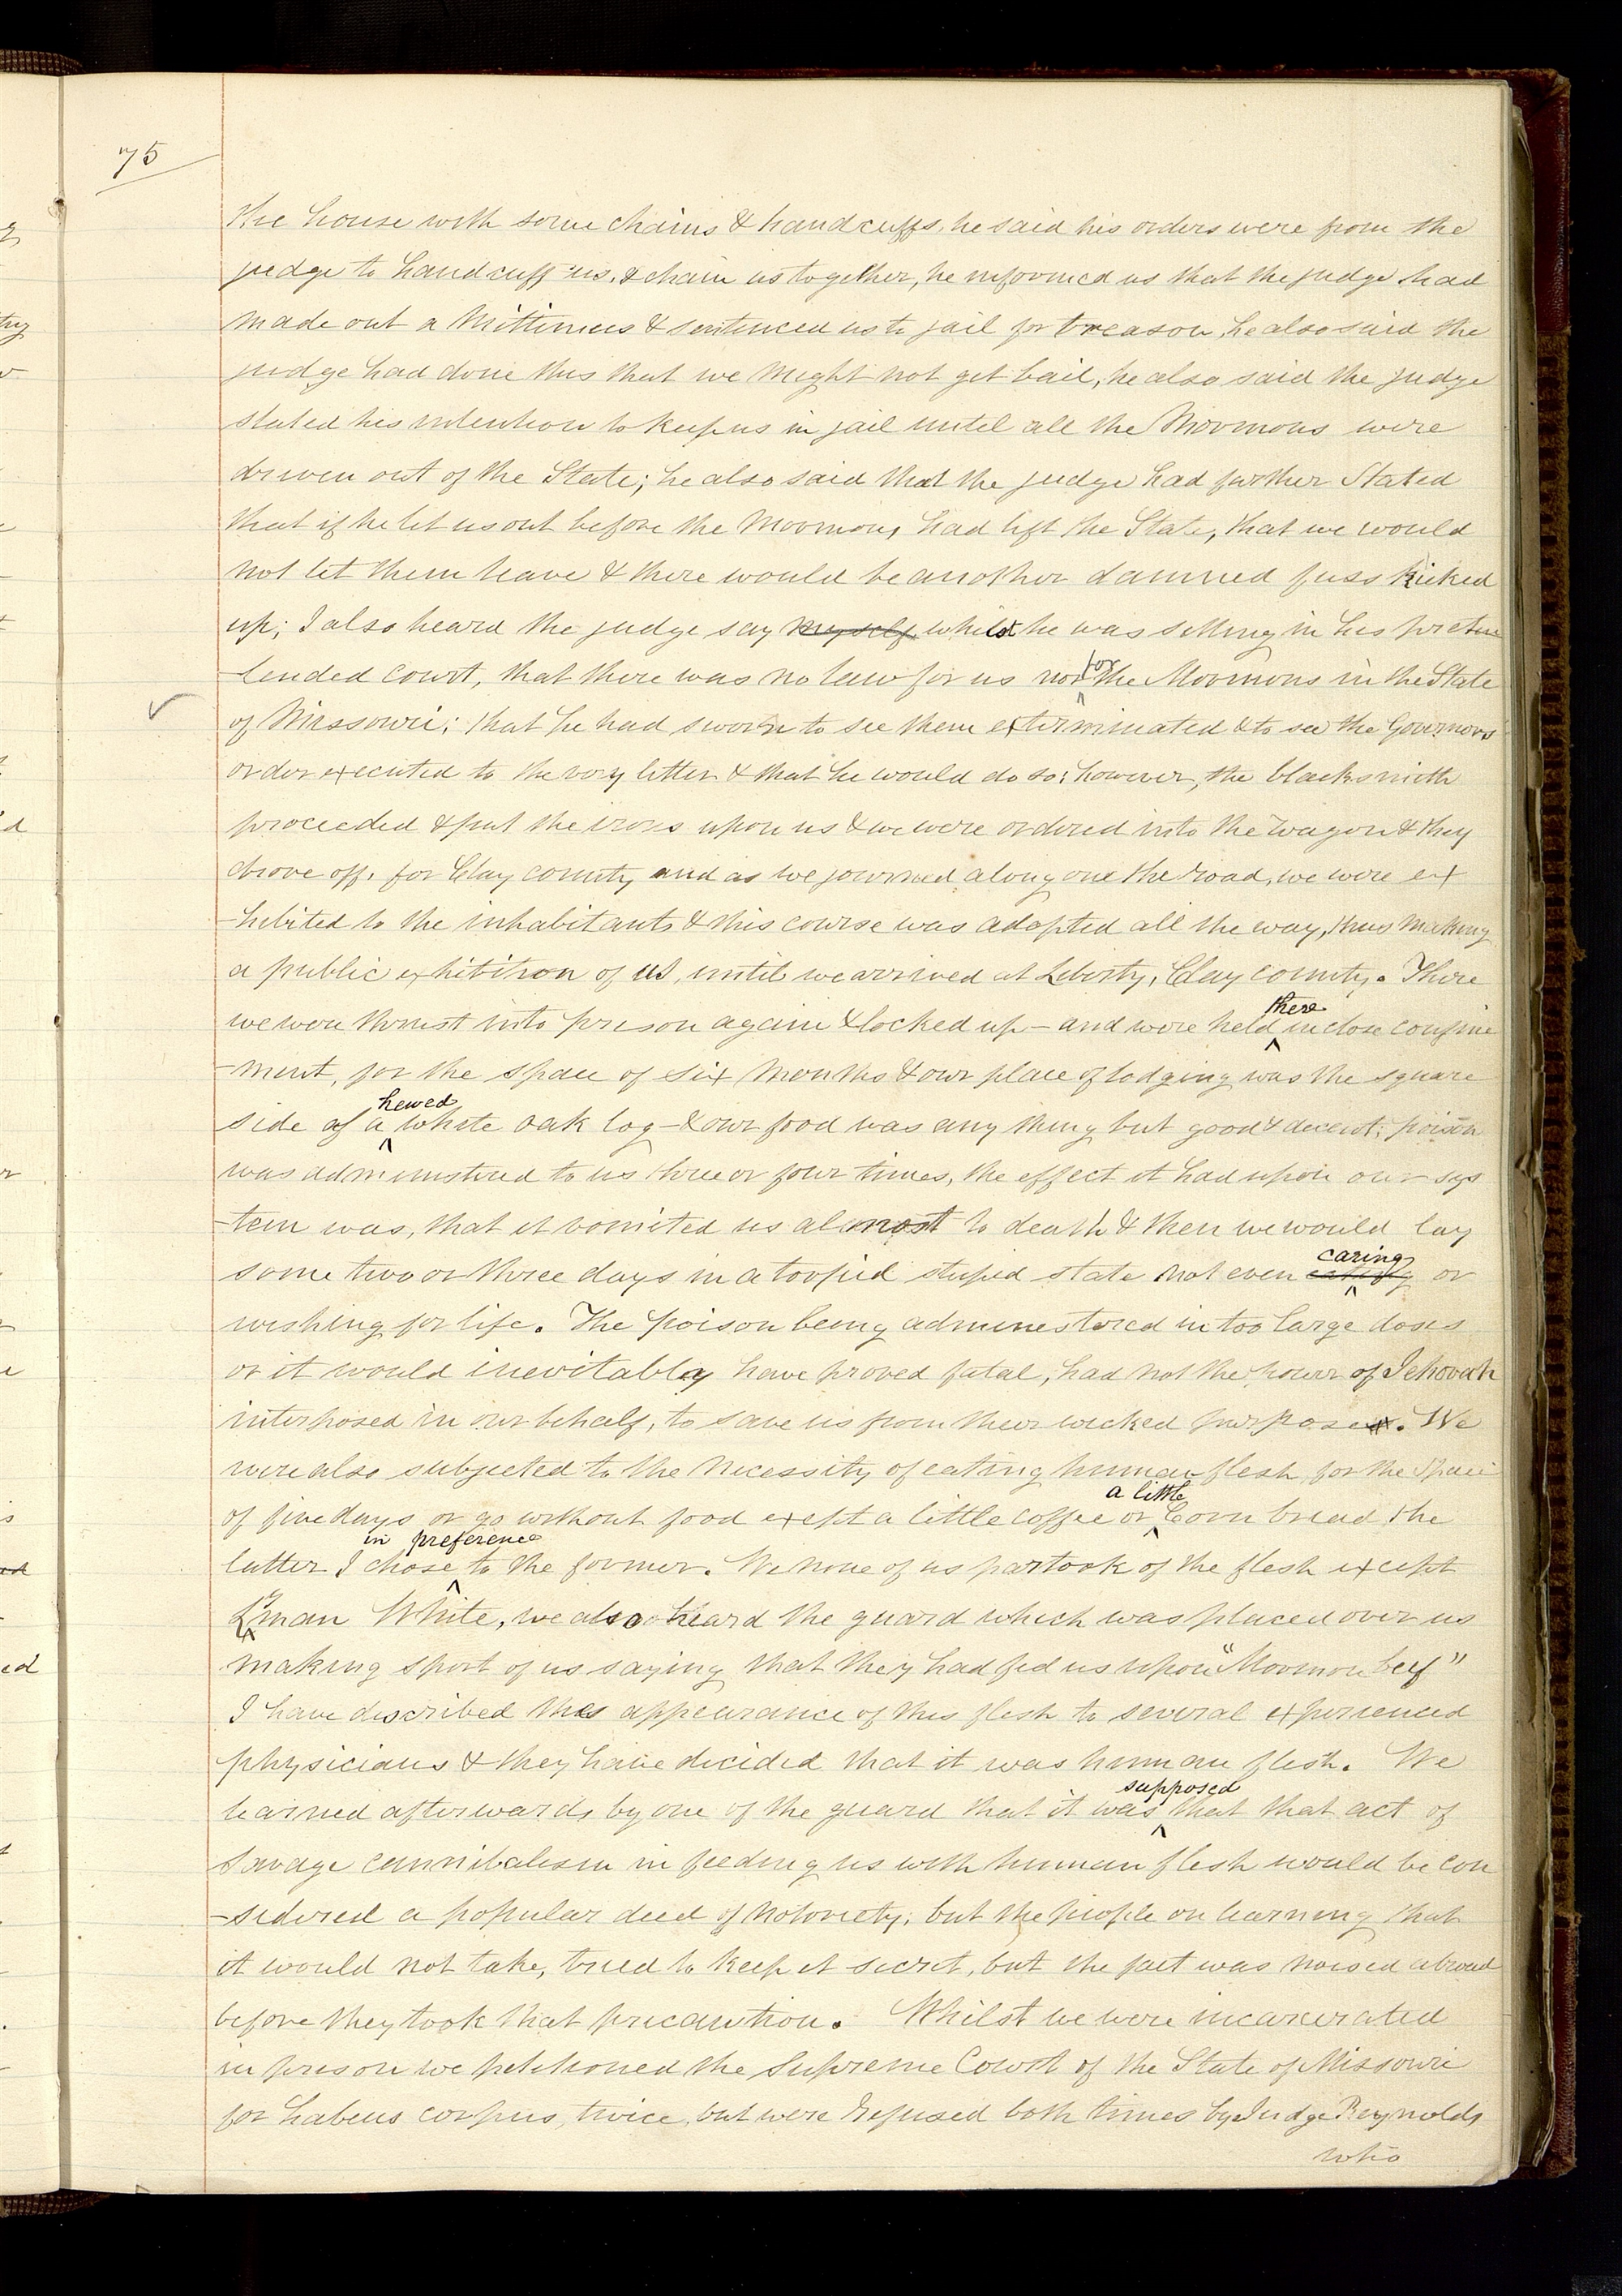 75
the house with some chains & handcuffs, he said his orders were from the
judge to handcuff us, & chain us together, he informed us that the judge had
made out a Mittimus & sentenced us to jail for treason, he also said the
judge had done this that we might not get bail; he also said the judge
stated his intention to keep us in jail until all the Mormons were
driven out of the State; he also said that the judge had further Stated
that if he let us out before the Mormons had left the State, that we would
not let them leave & there would be another damned fuss kicked
up; I also heard the judge say myself whilst he was sitting in his preten
-tended court, that there was no law for us nor for the Mormons in the State
of Missouri; that he had sworn to see them exterminated & to see the Governors
order executed to the very letter & that he would do so; however, the blacksmith
proceeded & put the irons upon us & we were ordered into the wagon & they
drove off, for Clay county and as we journed along one the road, we were ex
-hibited to the inhabitants & this course was adopted all the way, thus making
a public exhibition of us, until we arrived at Liberty, Clay county. There
we were thrust into prison again & locked up - and were held there in close confine
-ment, for the space of six months & our place of lodging was the square
side of a hewed white oak log - & our food was any thing but good & decent; poison
was administered to us three or four times, the effect it had upon our sys
-tem was, that it vomited us almost to death & then we would lay
some two or three days in a torpid stupid state not even caring or
wishing for life. The poison being administered in too large doses
or it would inevitably have proved fatal, had not the power of Jehovah
interposed in our behalf, to save us from their wicked purpose. We
were also subjected to the necessity of eating human flesh, for the space
of five days or go without food except a little coffee or a little Corn bread the
latter I chose in preference to the former. We none of us partook of the flesh except
Lyman White, we also heard the guard which was placed over us
making sport of us saying that they had fed us upon "Mormon beef"
I have described the appearance of this flesh to several experienced
physicians & they have decided that it was human flesh. We
learned afterwards, by one of the guard that it was supposed that that act of
savage cannibalism in feeding us with human flesh would be con
-sidered a popular deed of notoriety; but the people on learning that
it would not take, tried to keep it secret, but the fact was noised abroad
before they took that precaution. Whilst we were incarcerated
in prison we petitioned the Supreme Court of the State of Missouri
for habeus corpus, twice, but were refused both times by Judge Reynolds
who